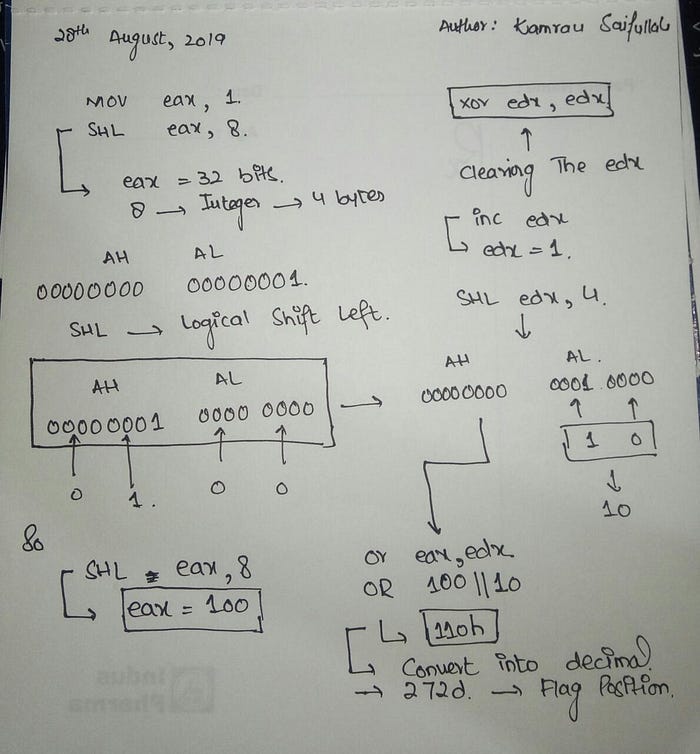 28th August, 2019
Author: Kamran Saifullah
MOV eax, 1.
SHL eax, 8.
eax = 32 bits.
8 → Integer → 4 bytes
AH AL
00000000 00000001.
SHL → Logical Shift Left.
AH AL
00000001 0000 0000
0 1. 0 0
So
SHL eax, 8
eax = 100
xor edx, edx
Clearing The edx
inc edx
edx = 1.
SHL edx, 4.
AH AL.
00000000 0001 0000
1 0
10
or eax, edx
OR 100 || 10
110h
Convert into decimal.
→ 272d. → Flag Position.
Indus
Pharma